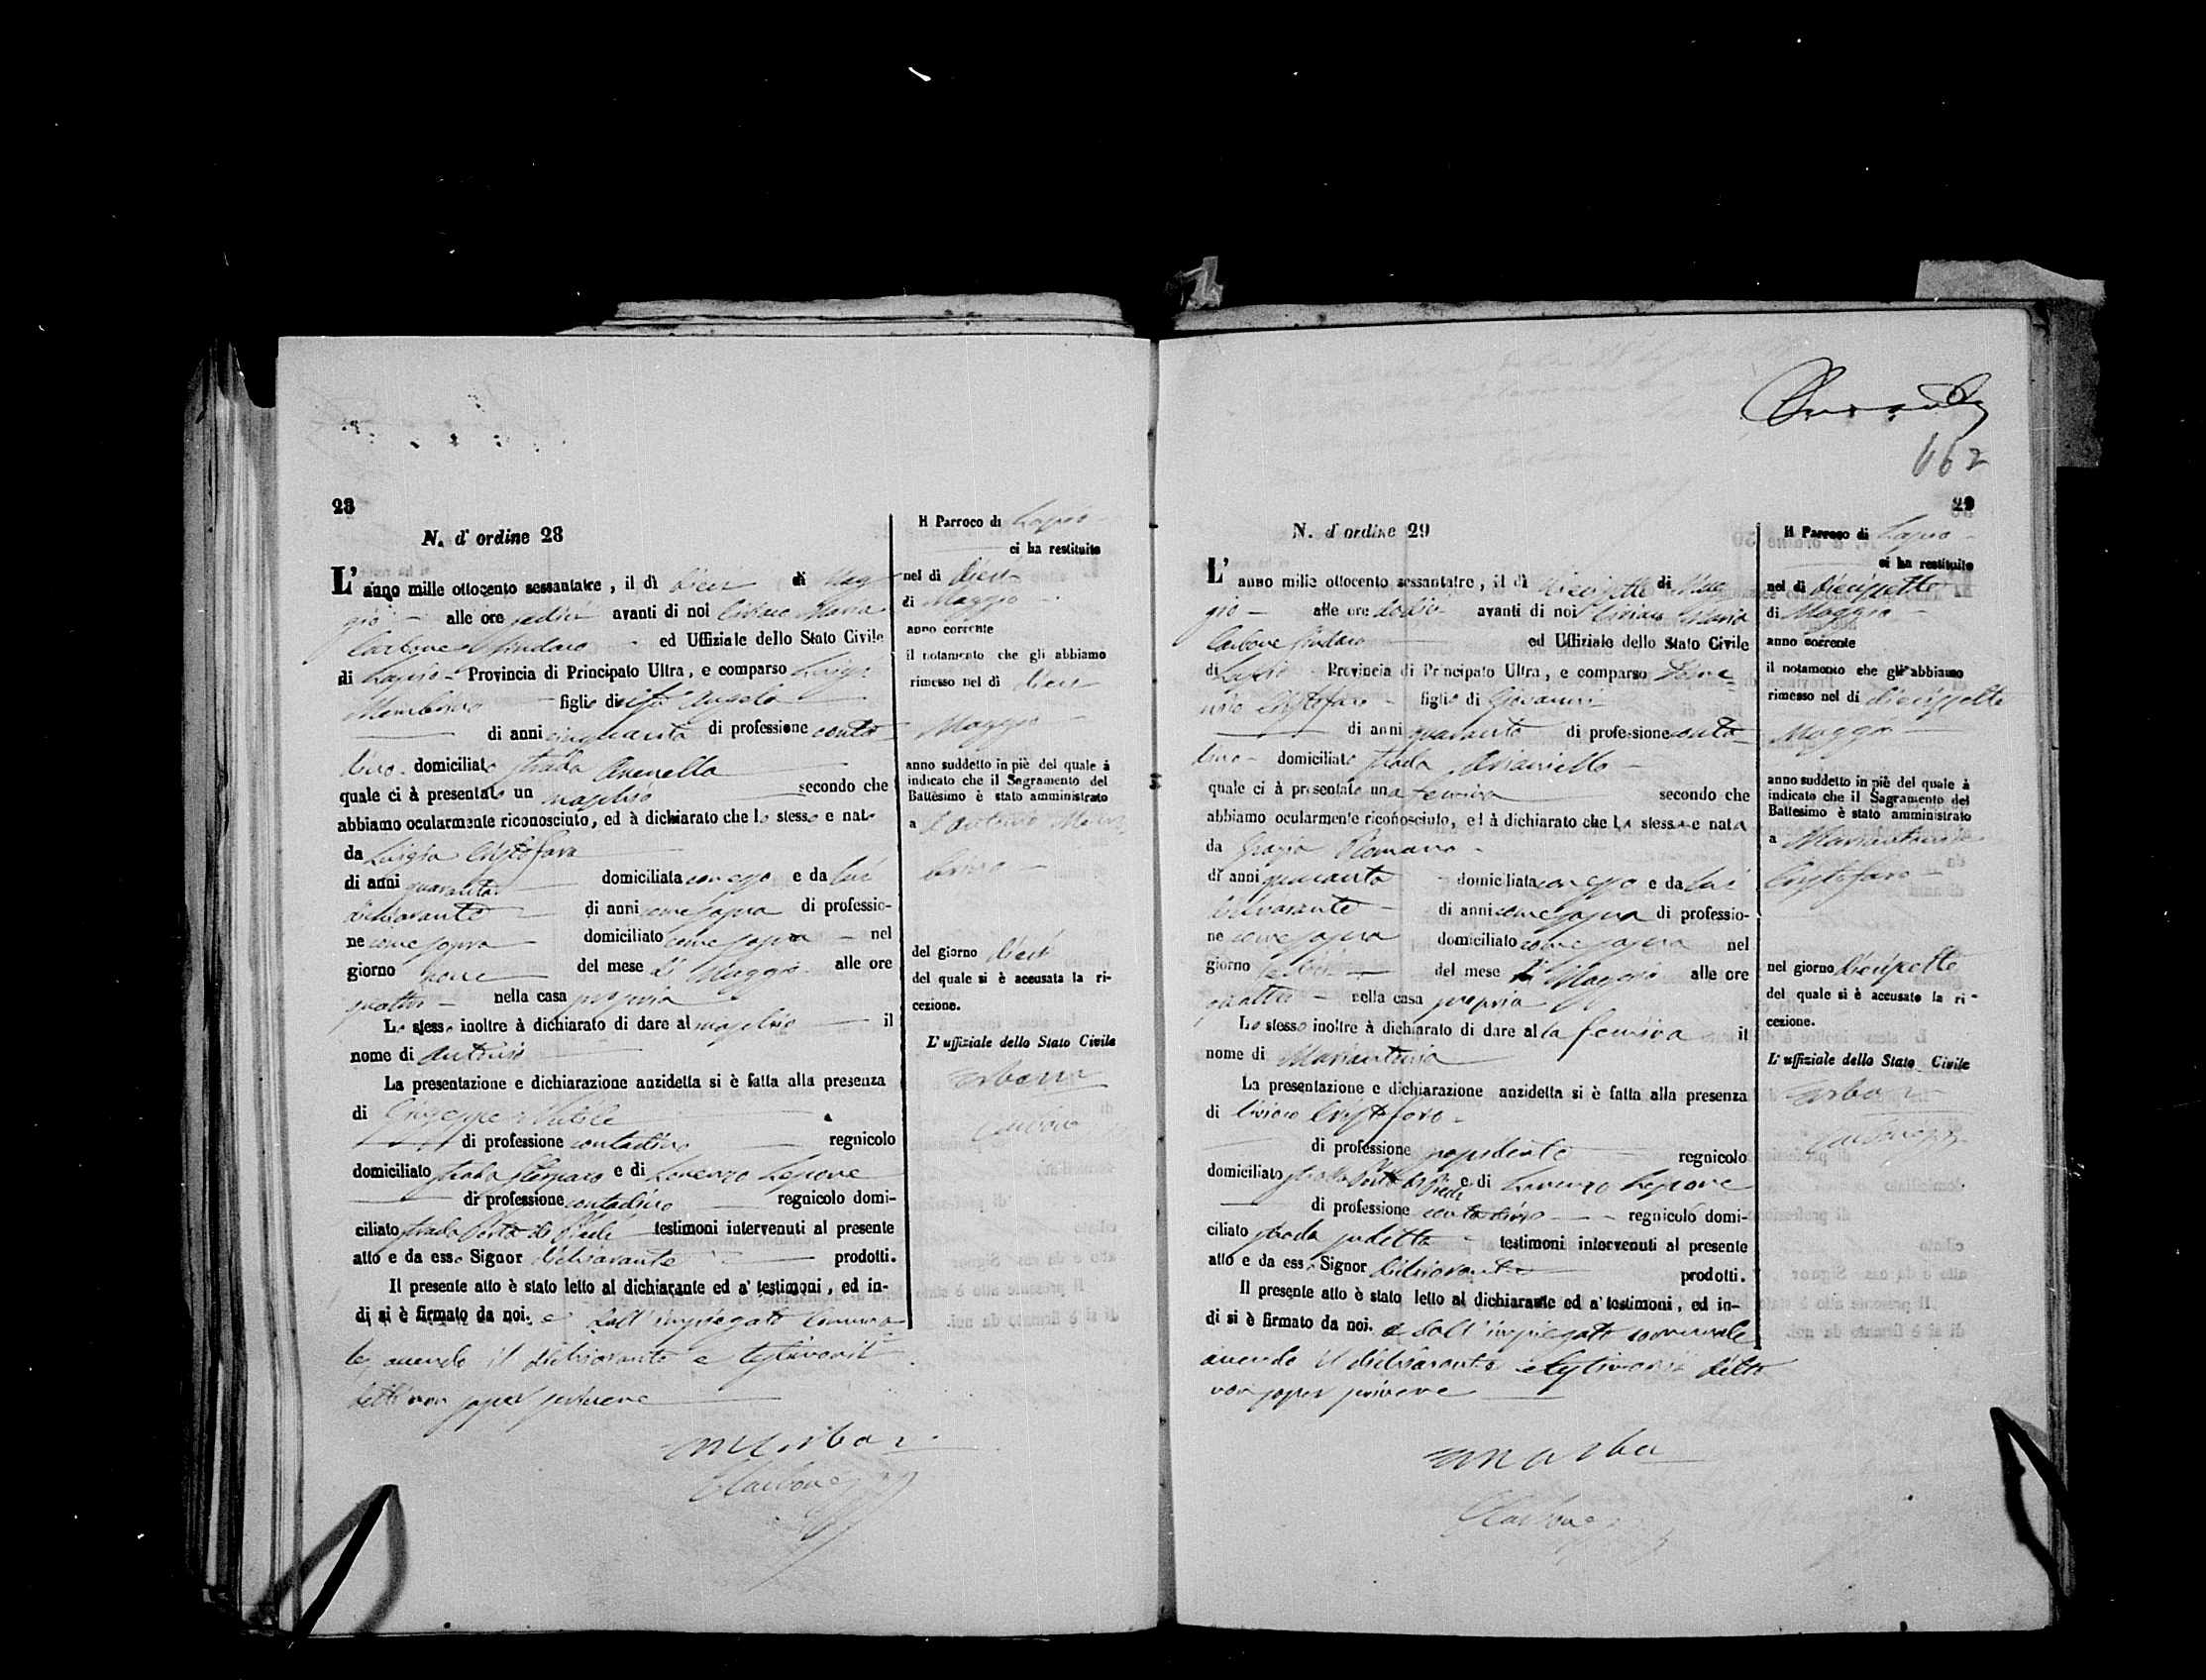 28
N. d'ordine 28
L'anno mille ottocento sessantatre, il dì dieci di Mag
gio alle ore sedici avanti di noi Maria
Carbone Sindaco ed Uffiziale dello Stato Civile
di Lapio Provincia di Principato Ultra, e comparso Luigi
figlio di Angelo
di anni cinquanta di professione conta
dino domiciliato strada
quale ci à presentato un maschio secondo che
abbiamo ocularmente riconosciuto, ed à dichiarato che lo stesso e nato
da Luigia Cristofaro
di anni quaranta domiciliata con esso e da lui
dichiarante di anni come sopra di professio-
ne come sopra domiciliato come sopra nel
giorno nove del mese di Maggio alle ore
quattro nella casa propria
Lo stesso inoltre à dichiarato di dare al maschio il
nome di Antonio
La presentazione e dichiarazione anzidetta si è fatta alla presenza
di Giuseppe
di professione contadino regnicolo
domiciliato strada e di Lorenzo Lepore
di professione contadino regnicolo domi-
ciliato strada Porta di testimoni intervenuti al presente
atto e da esso Signor dichiarante prodotti.
Il presente atto è stato letto al dichiarante ed a' testimoni, ed in-
di si è firmato da noi. e dall'impiegato comuna
le, avendo il dichiarante e testimonii
detto non saper scrivere
Carbone
Il Parroco di Lapio
ci ha restituito
nel dì dieci
di Maggio
anno corrente
il notamento che gli abbiamo
rimesso nel dì dieci
Maggio
anno suddetto in piè del quale à
indicato che il Sagramento del
Battesimo è stato amministrato
a Antonio
del giorno dieci
del quale si è accusata la ri-
cezione.
L'uffiziale dello Stato Civile
Carbone
162
29
N. d'ordine 29
L'anno mille ottocento sessantatre, il dì diecisette di Mag
gio alle ore dodici avanti di noi Maria
Carbone Sindaco ed Uffiziale dello Stato Civile
di Lapio Provincia di Principato Ultra, e comparso Dome
nico Cristofaro figlio di Giovanni
di anni quaranta di professione conta
dino domiciliato strada
quale ci à presentato una femina secondo che
abbiamo ocularmente riconosciuto, ed à dichiarato che la stessa e nata
da Grazia Romano
di anni quaranta domiciliata con esso e da lui
dichiarante di anni come sopra di professio-
ne come sopra domiciliato come sopra nel
giorno del mese di Maggio alle ore
quattro nella casa propria
Lo stesso inoltre à dichiarato di dare alla femina il
nome di Mariantonia
La presentazione e dichiarazione anzidetta si è fatta alla presenza
di Cristofaro
di professione regnicolo
domiciliato strada e di Lorenzo Lepore
di professione contadino regnicolo domi-
ciliato strada testimoni intervenuti al presente
atto e da esso Signor dichiarante prodotti.
Il presente atto è stato letto al dichiarante ed a' testimoni, ed in-
di si è firmato da noi. e dall'impiegato comunale
avendo il dichiarante e testimonii detto
non saper scrivere
Carbone
Il Parroco di Lapio
ci ha restituito
nel dì diecisette
di Maggio
anno corrente
il notamento che gli abbiamo
rimesso nel dì diecisette
Maggio
anno suddetto in piè del quale à
indicato che il Sagramento del
Battesimo è stato amministrato
a Mariantonia
Cristofaro
nel giorno diecisette
del quale si è accusato la ri-
cezione.
L'uffiziale dello Stato Civile
Carbone